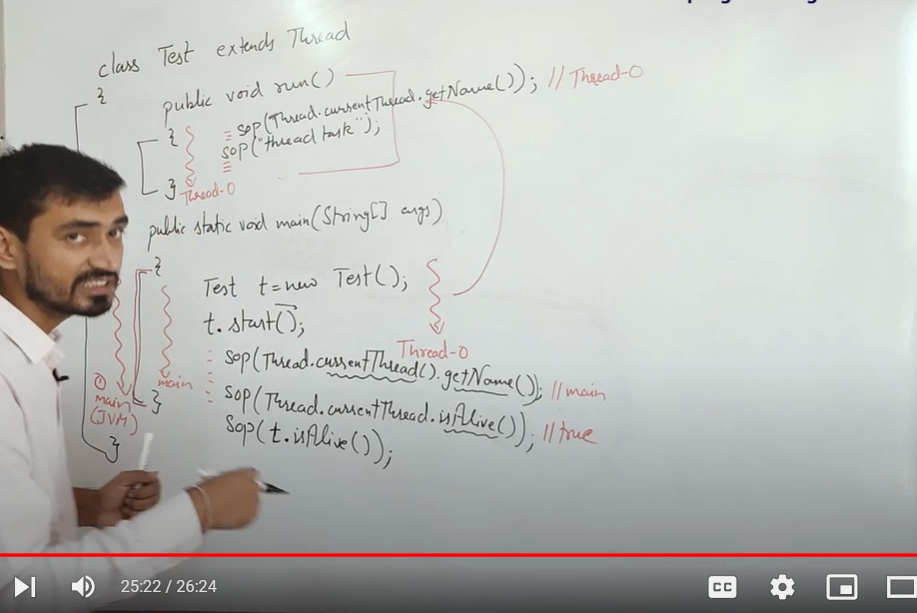 class Test extends Thread
{
public void run()
{
sop(Thread.currentThread.getName()); // Thread-0
sop("thread task");
}
Thread-0
public static void main(String[] args)
{
Test t=new Test();
t.start();
Thread-0
sop(Thread.currentThread().getName()); // main
main
sop(Thread.currentThread.isAlive()); // true
}
main
(JVM)
sop(t.isAlive());
}
25:22 / 26:24
CC